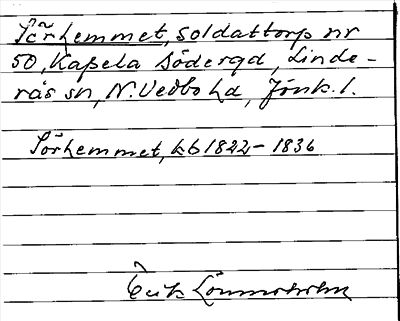 Sörhemmet, soldattorp nr
50, Kaxela Södergd, Linde-
rås sn, N. Vedbo hd, Jönk. l.
Sörhemmet, kb 1822-1836
Erik